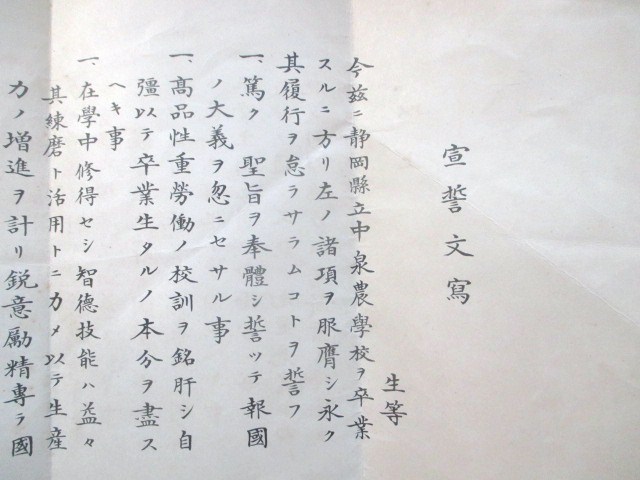 宣誓文寫
生等
今茲ニ靜岡縣立中泉農學校ヲ卒業
スルニ方リ左ノ諸項ヲ服膺シ永ク
其履行ヲ怠ラサラムコトヲ誓フ
一、篤ク 聖旨ヲ奉體シ誓ツテ報國
ノ大義ヲ忽ニセサル事
一、高品性重勞働ノ校訓ヲ銘肝シ自
彊以テ卒業生タルノ本分ヲ盡ス
ヘキ事
一、在學中修得セシ智德技能ハ益々
其練磨ト活用トニカメ以テ生産
力ノ增進ヲ計リ銳意勵精專ラ國